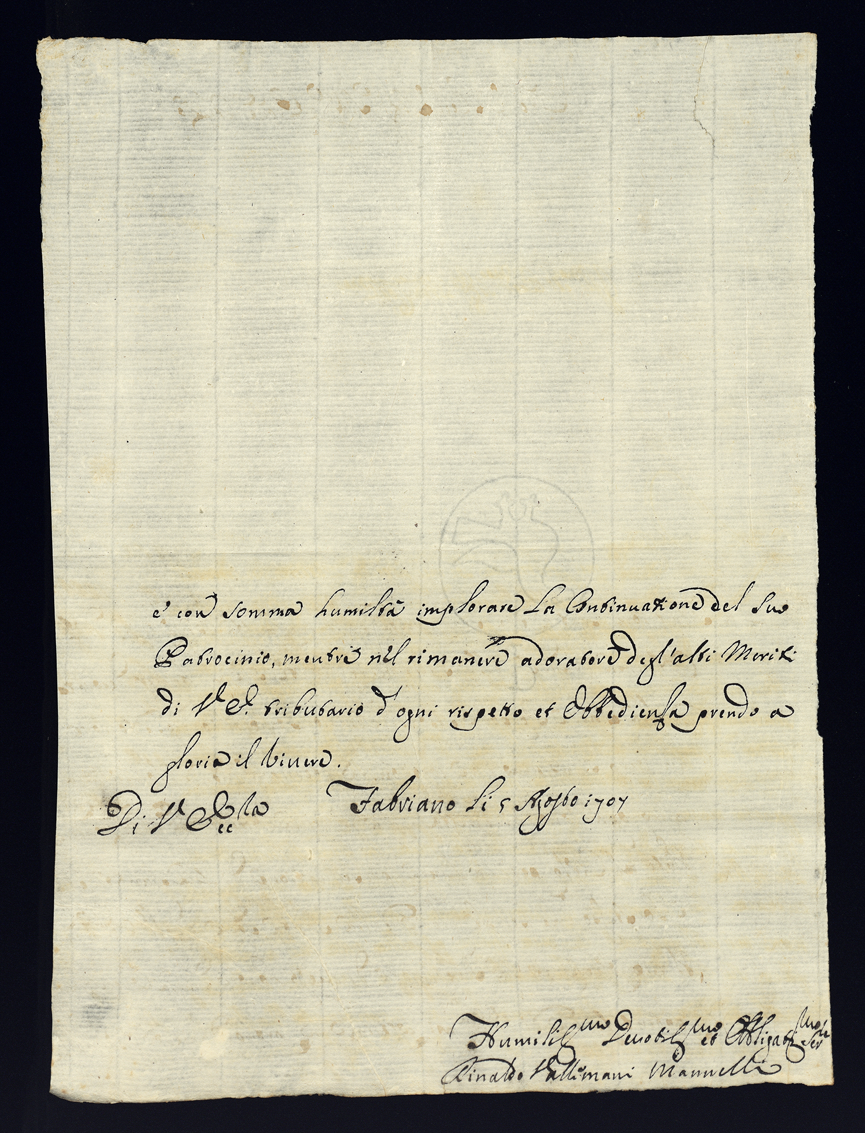 e con somma humiltà implorare La Continuatione del suo
Patrocinio, mentre nel rimanere adoratore degl'alti Meriti
di V. E. tributario d'ogni rispetto et Obbedienza prendo a
gloria il vivere.
Di V. Ecc.la Fabriano Li 5 Agosto 1707
Humiliss.mo Devotiss.mo et Obligatiss.mo Ser.re
Rinaldo Vallemani Mannelli